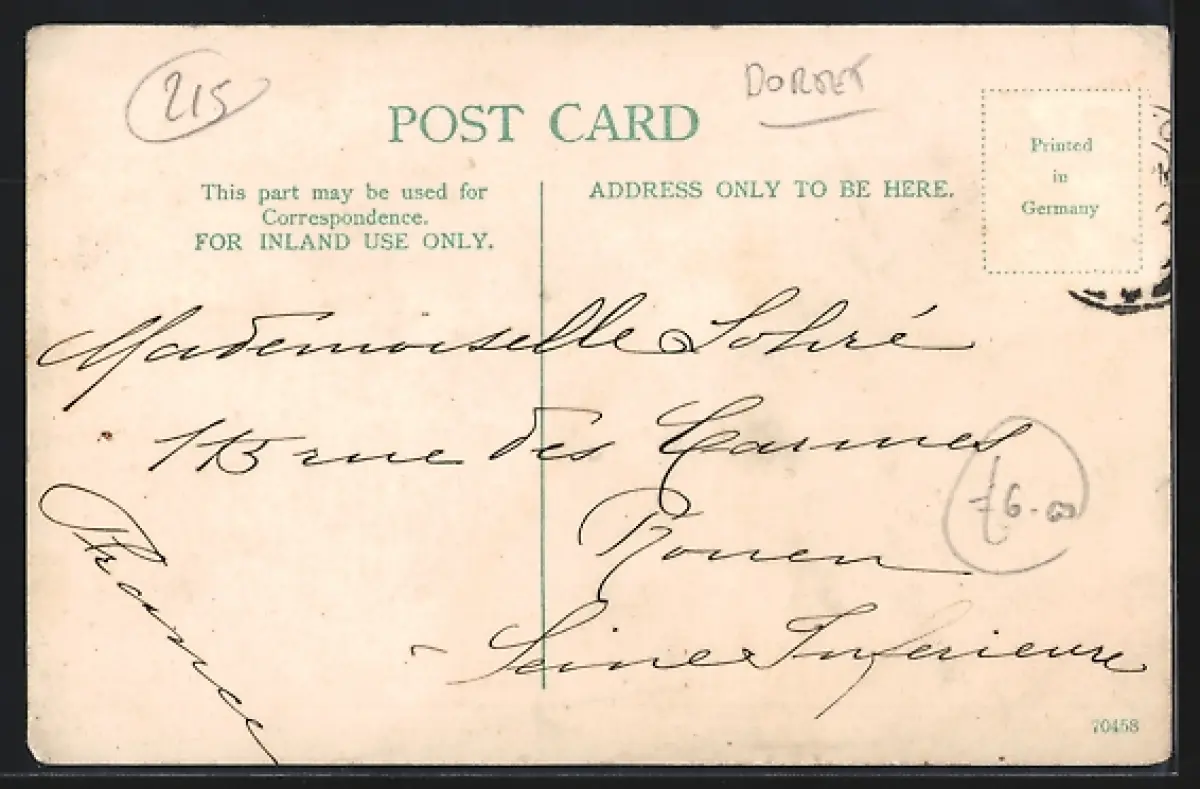 215
DORSET
POST CARD
This part may be used for
Correspondence.
FOR INLAND USE ONLY.
ADDRESS ONLY TO BE HERE.
Printed
in
Germany
Mademoiselle
115 rue des Carmes
Rouen
Seine Inferieure
France
£6.00
70458